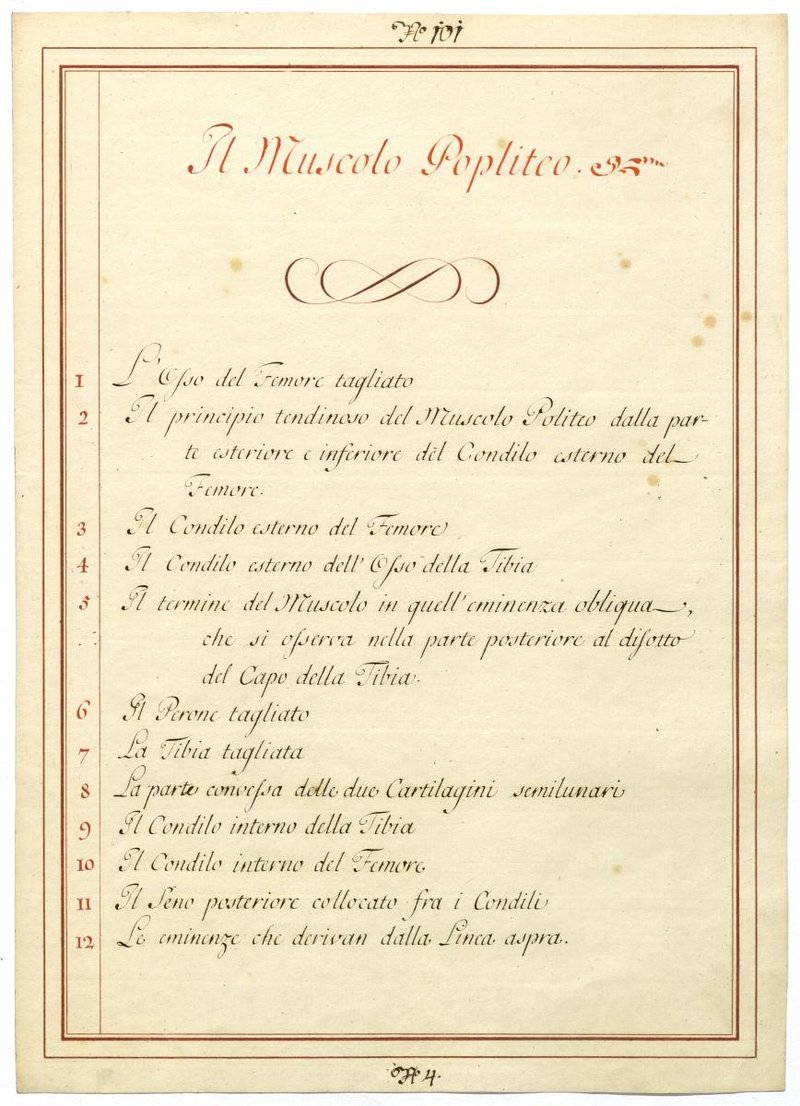 No 101
Il Muscolo Popliteo.
1 L'Osso del Femore tagliato
2 Il principio tendinoso del Muscolo Politeo dalla par-
te esteriore e inferiore del Condilo esterno del
Femore.
3 Il Condilo esterno del Femore
4 Il Condilo esterno dell'Osso della Tibia
5 Il termine del Muscolo in quell'eminenza obliqua,
che si osserva nella parte posteriore al disotto
del Capo della Tibia.
6 Il Perone tagliato
7 La Tibia tagliata
8 La parte convessa delle due Cartilagini semilunari
9 Il Condilo interno della Tibia
10 Il Condilo interno del Femore
11 Il Seno posteriore collocato fra i Condili
12 Le eminenze che derivan dalla Linea aspra.
No 4.